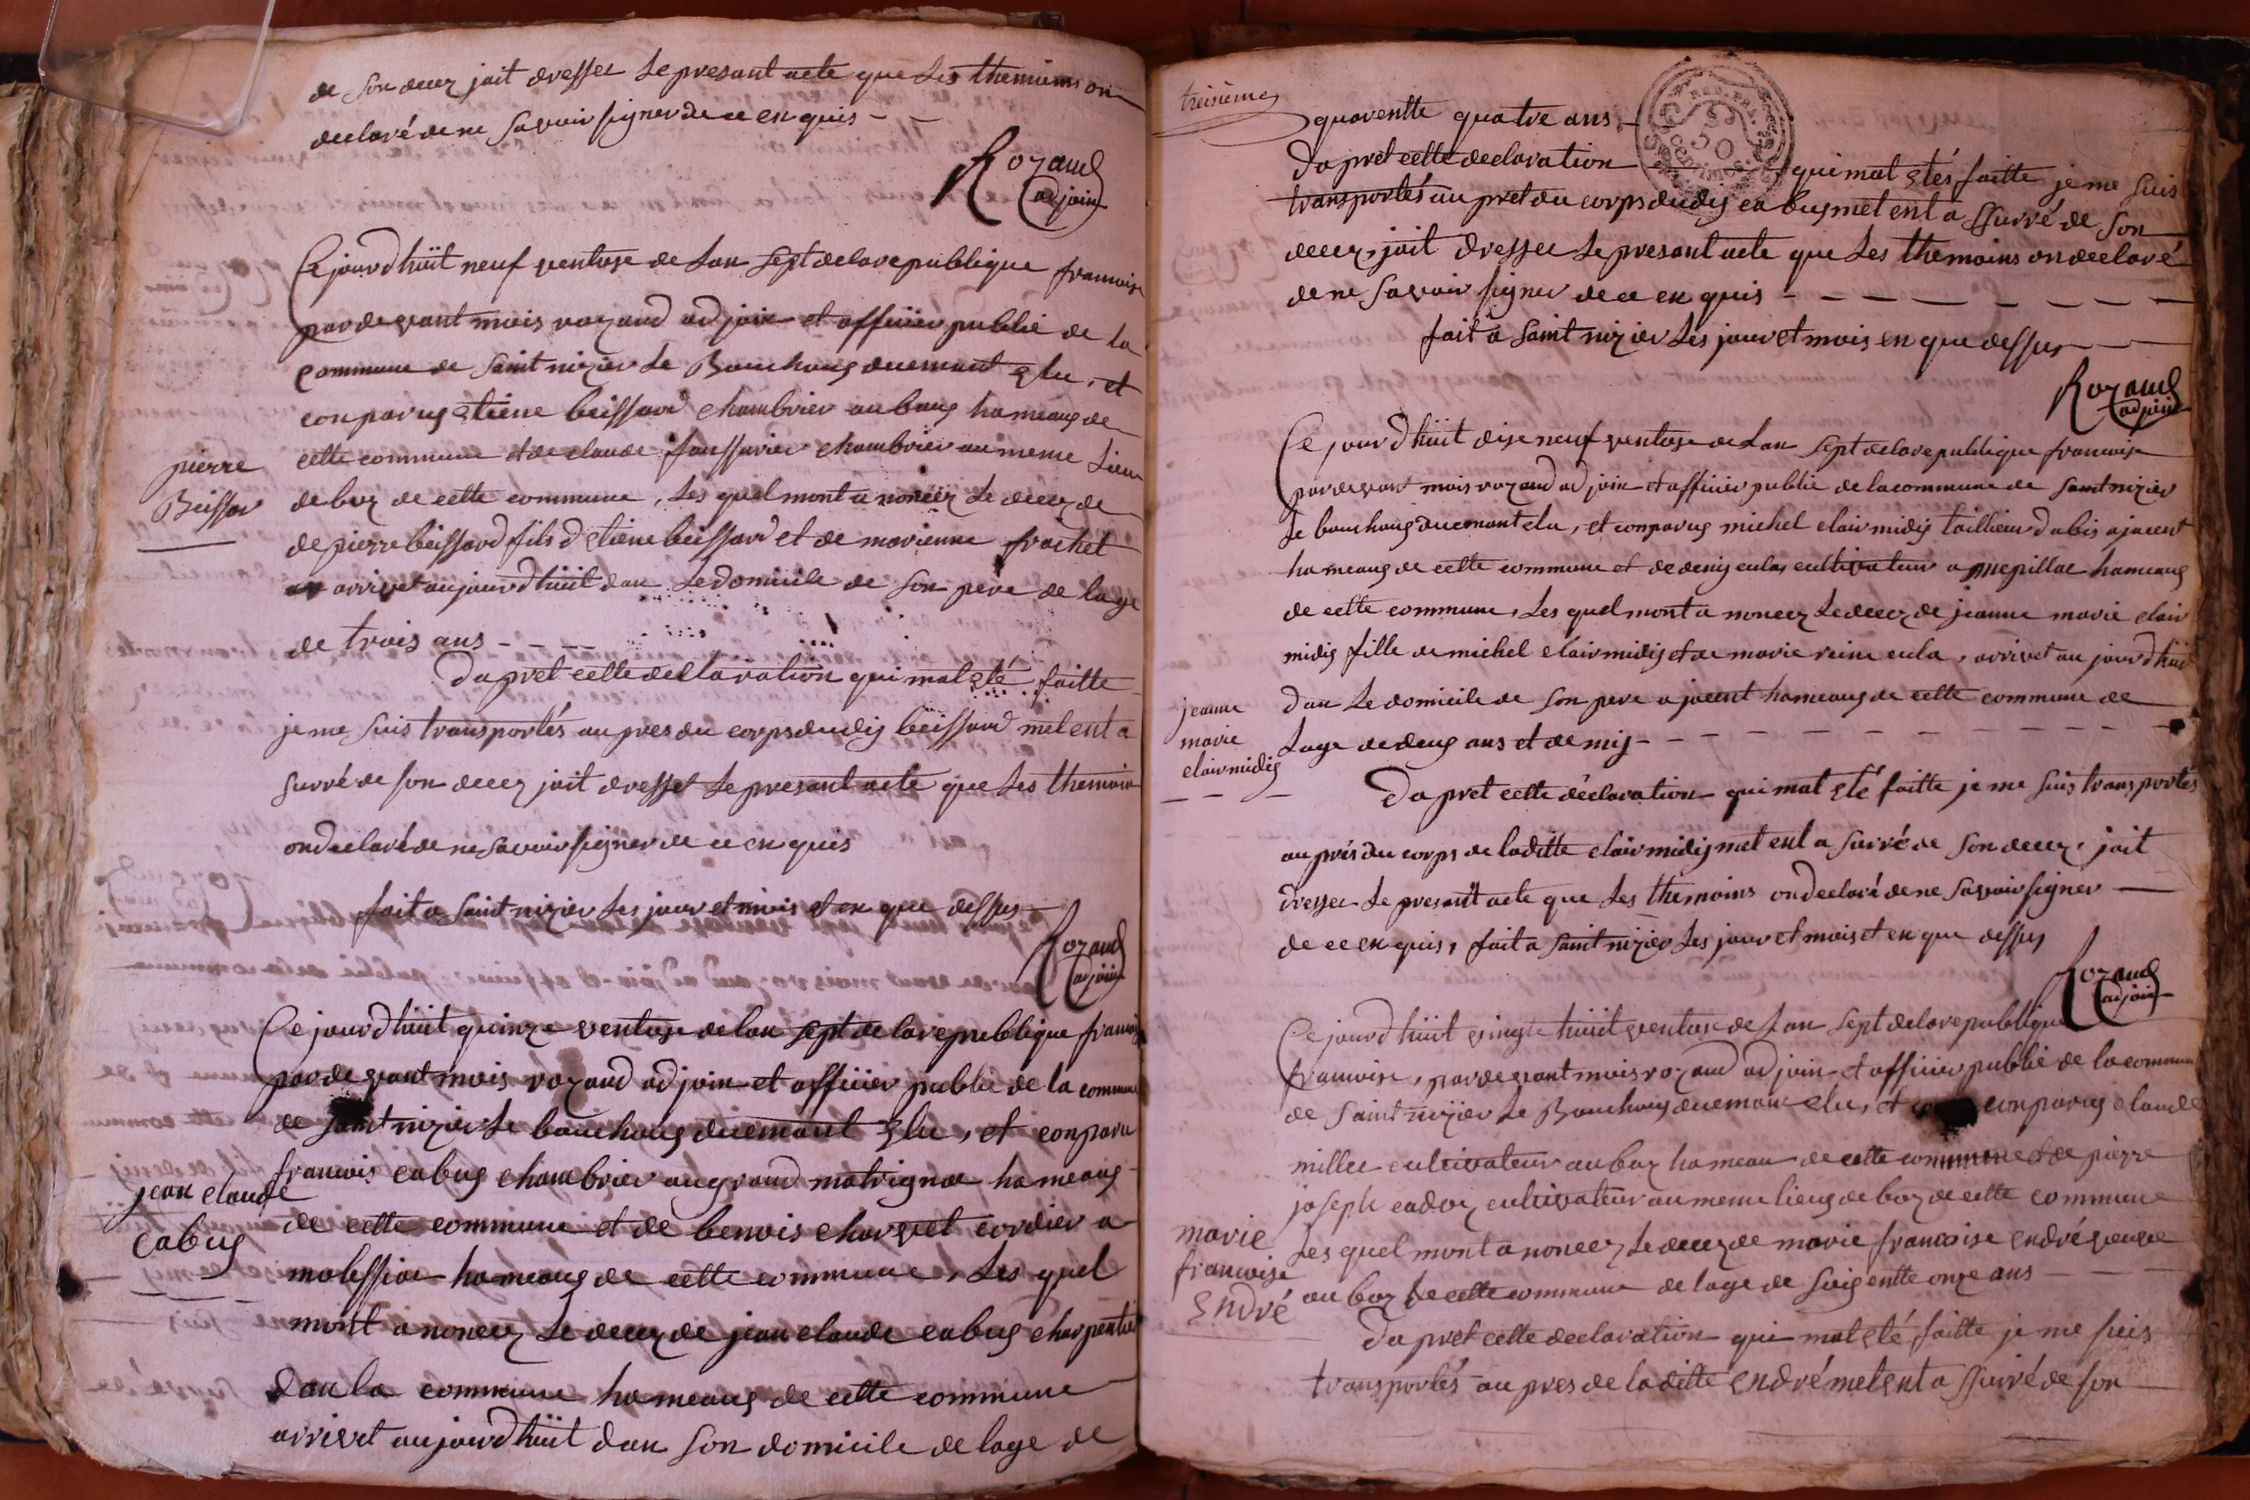 de son decez jait dressez Le presant acte que Les themiums on
declaré de ne savoir signer de ce en quis - -
Rozand
adjoin
Ce jourd hüit neuf ventose de Lan sept de la republique francoise
par devant mois rozand adjoin et officier public de la
commune de saint nizier Le Bouchoug duemant Elu, et
conparus Etiene beissard chambrier au bang hameaug de
cette commune et de claude foussurier chambrier au meme Lieu
de boz de cette commune, Les quel mont a noncez Le decez de
de pierre beissard fils d Etiene beissard et de marienne frachet
arrivet aujourd hüit dan Le domicile de son pere de lage
de trois ans - - - -
Da pret cette declaration qui mat eté faitte
je me suis transportés au pres du corps dudig beissard met ent a
surré de son decez jait dresset Le presant acte que Les themoin
on declaré de ne savoir signer de ce en quis
fait a saint nizier Les jour et mois et en que dessus
Rozand
adjoin
pierre
Beissar
Ce jourd hüit quinze ventose de lan sept de la republique francois
par devant mois rozand adjoin et officier public de la commune
de saint nizier Le bouchoug duemant Elu, et conparu
francois cabug chambrier au grand matrignat hameaug
de cette commune et de benois charvet cordier a
malessiat hameaug de cette commune, Les quel
mont a noncez Le decez de jean claude cabug charpentier
dan la commune hameaug de cette commune
arrivet aujourd hüit dan son domicile de lage de
jean claude
cabug
treisieme
quarentte quatre ans -
Da pret cette declaration qui mat Etés faitte je me suis
transportés au pret du corps dudig cabug met ent a ssurré de son
decez, jait dressee Le presant acte que Les themoins on declaré
de ne savoir signer de ce en quis - - - - - - - -
fait a saint nizier Les jour et mois en que dessus
Rozand
adjoin
Ce jourd hüit dise neuf ventose de Lan sept de la republique francoise
par devant mois rozand adjoin et officier public de la commune de saint nizier
Le bouchoug duemant elu, et conparus michel clair midig taillieur dabis a jacent
hameaug de cette commune et de denis cula, cultivateur a mepillat hameaug
de cette commune, Les quel mont a noncez Le decez de jeanne marie clair
midis fille de michel clair midis et de marie reine cula, arrivet au jourd huit
dan Le domicile de son pere a jacent hameaug de cette commune de
Lage de deug ans et de mis - - - - - - -
jeanne
marie
clairmidis
Da pret cette déclaration qui mat eté faitte je me suis transportés
au prés du corps de laditte clair midis met ent a surré de son decez, jait
dressee Le presant acte que Les themoins on declaré de ne savoir signer
de ce en quis, fait a saint nizier Les jour et mois et en que dessus
Rozand
adjoin
Ce jourd hüit vingte hüit ventose de Lan sept de la republique
francoise, par devant mois rozand adjoin et officier public de la commune
de saint nizier Le Bouchoug duemant elu, et conparus claude
millet cultivateur au boz hameau de cette commune et de pierre
joseph cadoz cultivateur au meme lieug de boz de cette commune
Les quel mont a noncez Le decez de marie francoise Endré veuve
au boz de cette commune de lage de soigentte onze ans
marie
francoise
Endré
Da pret cette declaration qui mat eté faitte je me suis
transportés au pres de laditte Endré met ent a ssurré de son